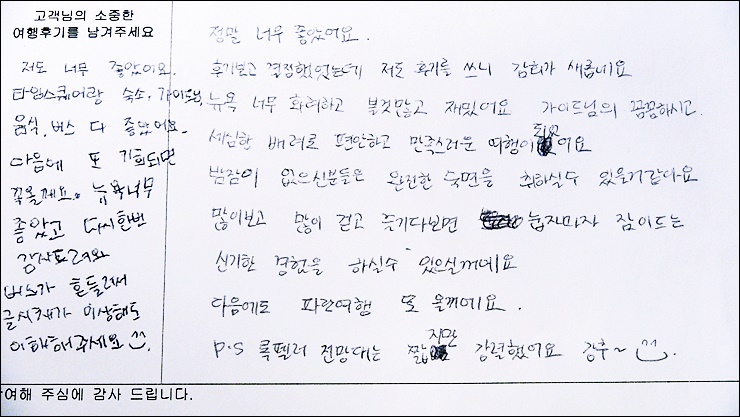 고객님의 소중한
여행후기를 남겨주세요
저도 너무 좋았어요.
타임스퀘어랑 숙소, 가이드님,
음식, 버스 다 좋았어요.
다음에 또 기회되면
꼭올께요. 뉴욕너무
좋았고 다시한번
감사드려요
버스가 흔들려서
글씨체가 이상해도
이해해주세요 ^^
정말 너무 좋았어요.
후기보고 결정했었는데 저도 후기를 쓰니 감회가 새롭네요
뉴욕 너무 화려하고 볼것많고 재밌어요 가이드님의 꼼꼼하시고
세심한 배려로 편안하고 만족스러운 여행이 되었어요
밤잠이 없으신분들은 완전한 숙면을 취하실수 있을거같아요
많이보고 많이 걷고 즐기다보면 눕자마자 잠이드는
신기한 경험을 하실수 있으실꺼에요
다음에도 파란여행 또 올께에요.
P.S 록펠러 전망대는 짧지만 강렬했어요 강추~ ^^.
여해 주심에 감사 드립니다.